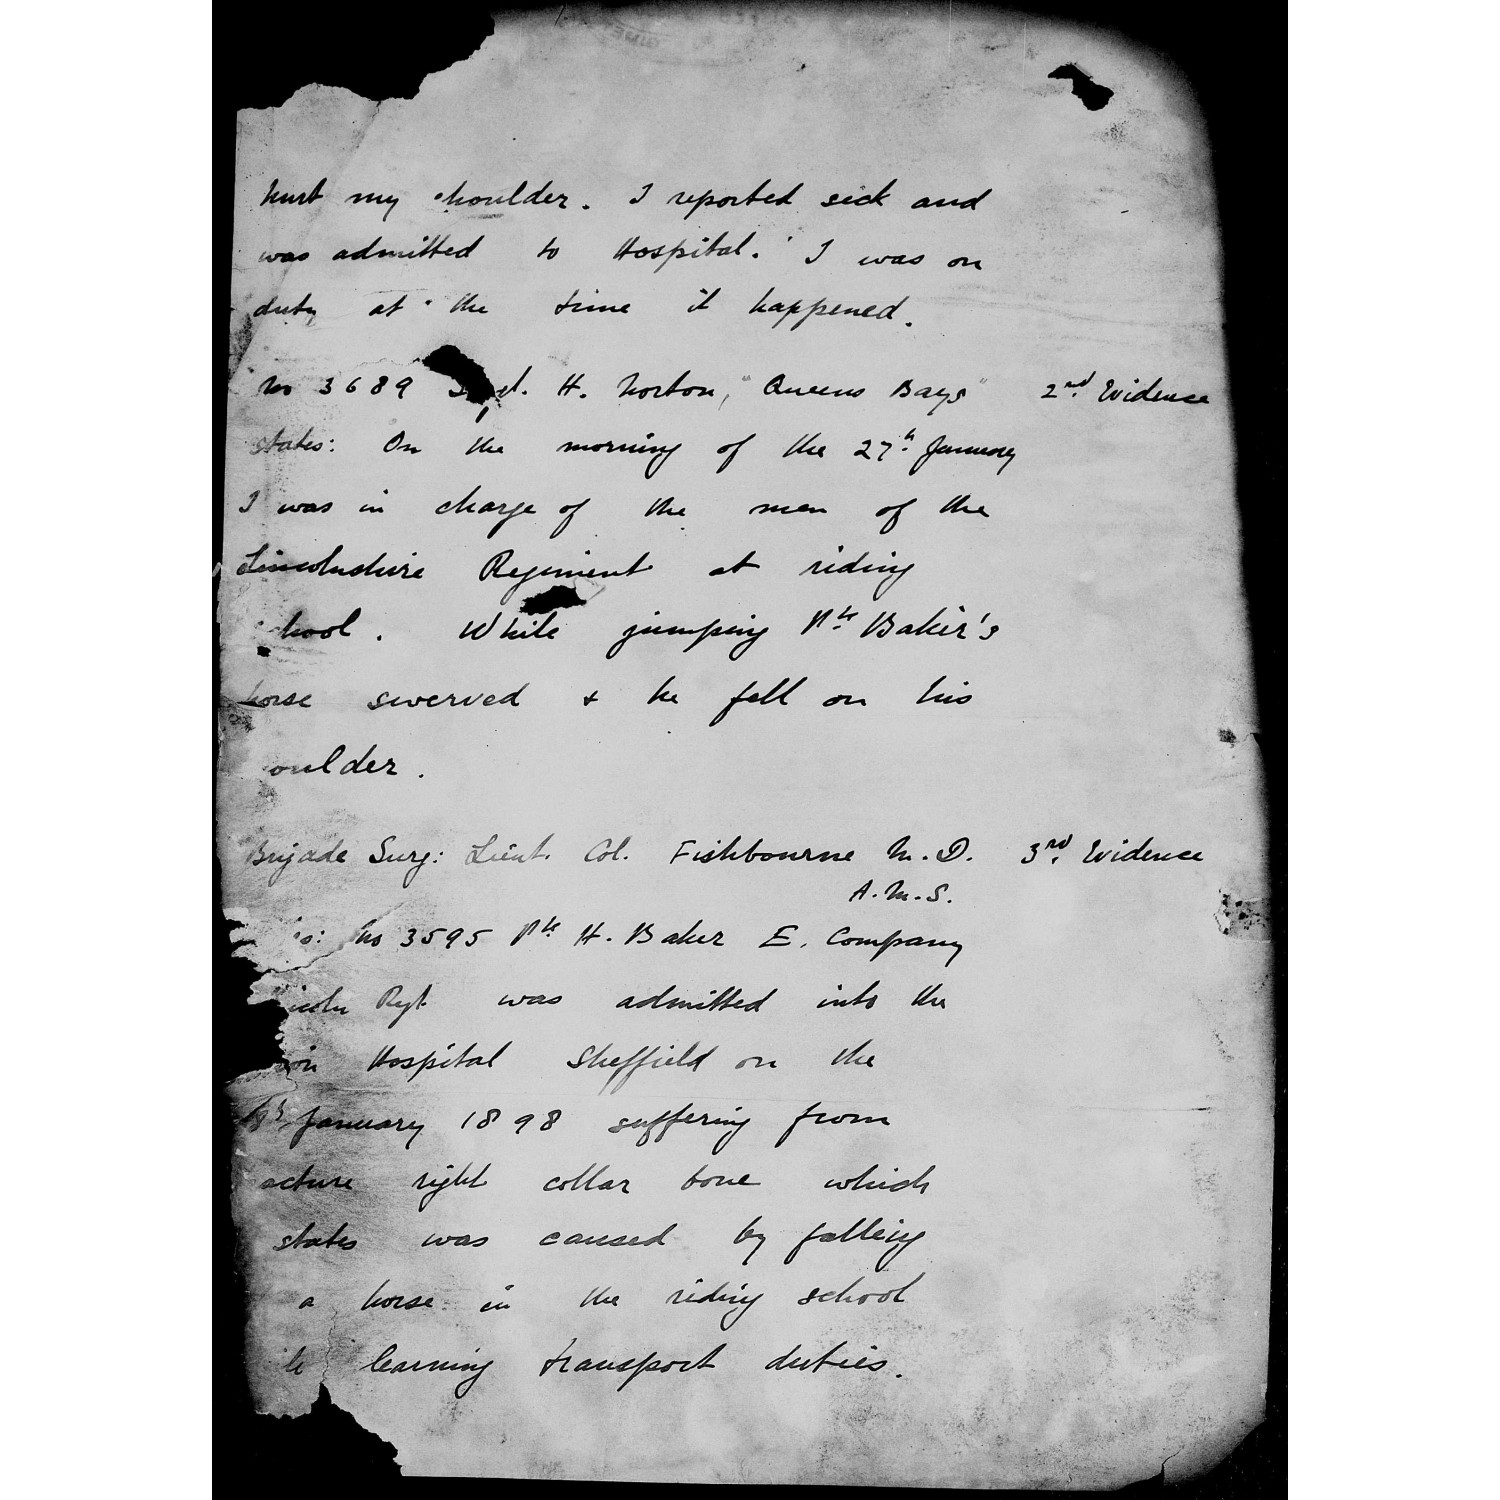 hurt my shoulder. I reported sick and
was admitted to Hospital. I was on
duty at the time it happened.
No 3689 H. Norton, "Queens Bays" 2nd. Evidence
states: On the morning of the 27th January
I was in charge of the men of the
Lincolnshire Regiment at riding
chool. While jumping Pte Baker's
horse swerved & he fell on his
oulder.
Brigade Surg: Lieut. Col. Fishbourne M.D. 3rd. Evidence
A.M.S.
No 3595 Pte H. Baker E. Company
Regt was admitted into the
Hospital Sheffield on the
January 1898 suffering from
acture right collar bone which
states was caused by falling
a horse in the riding school
learning transport duties.